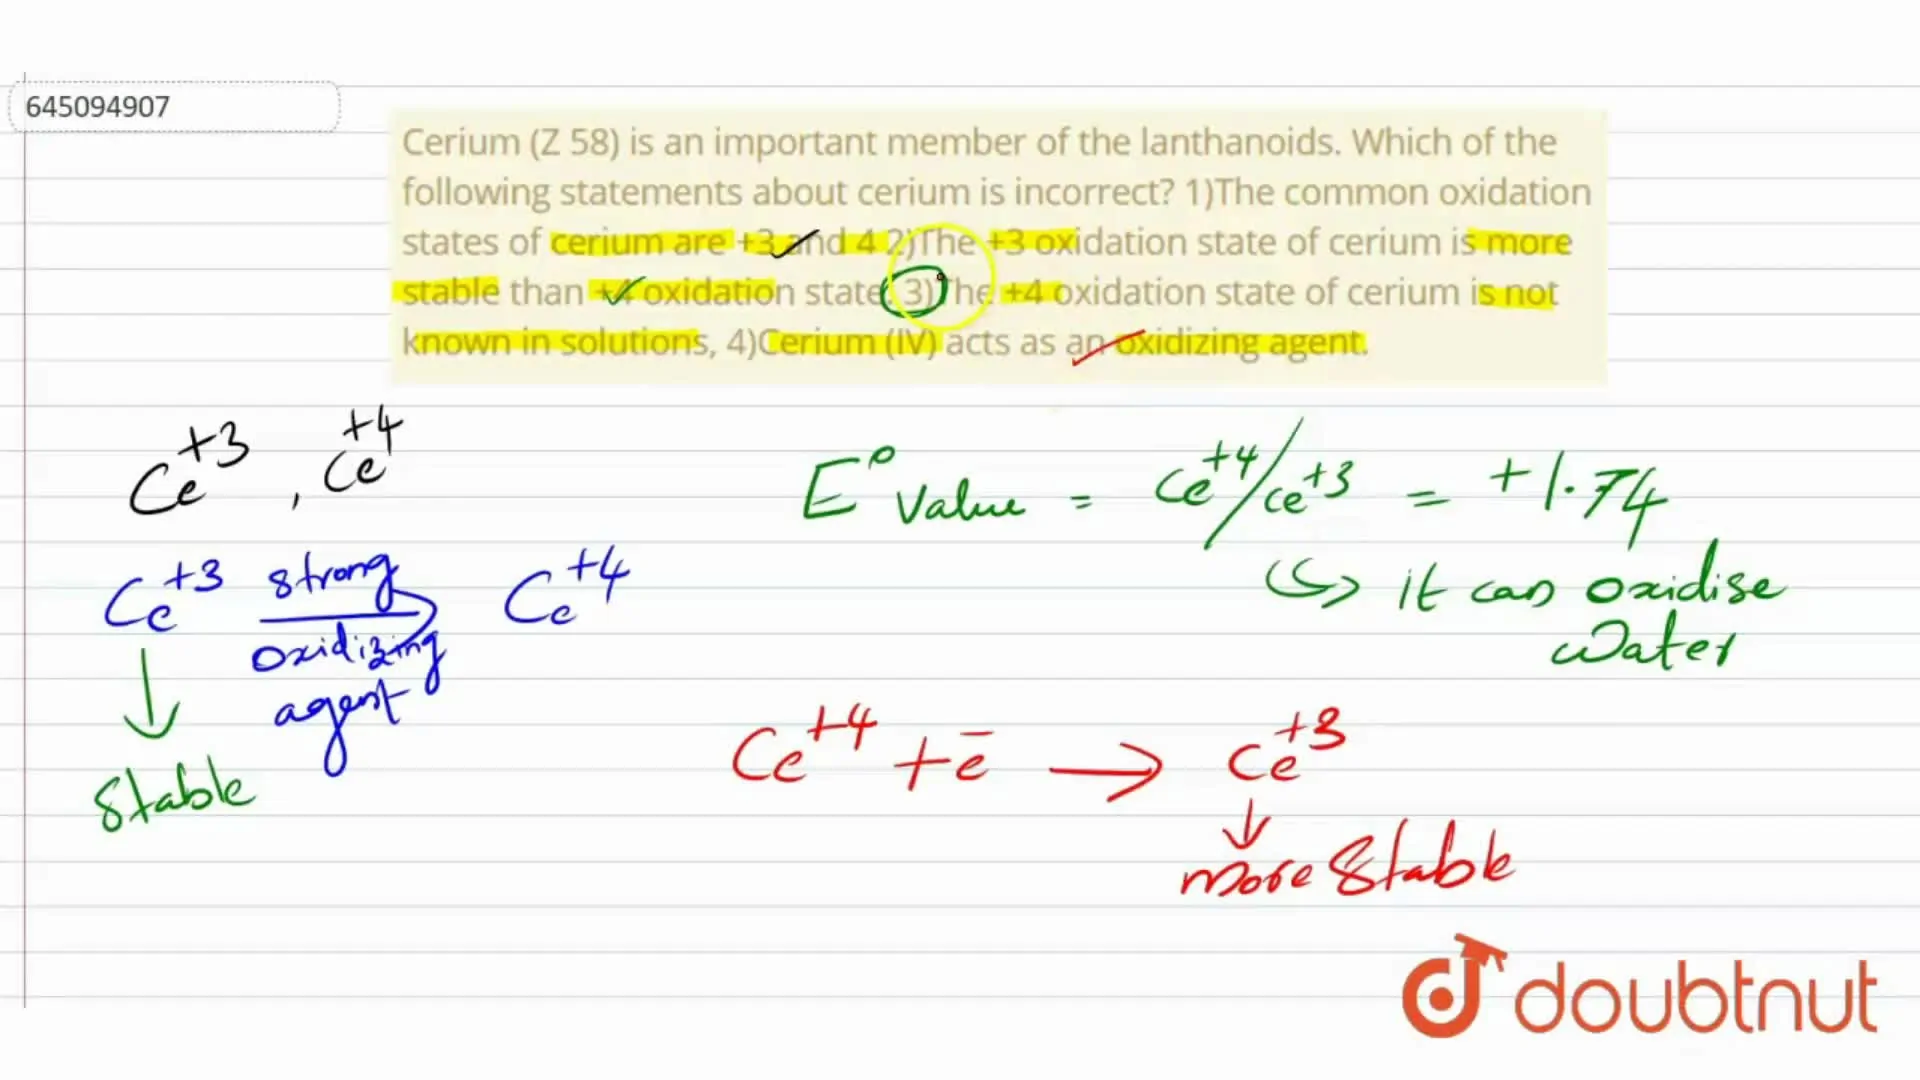 645094907
Cerium (Z 58) is an important member of the lanthanoids. Which of the
following statements about cerium is incorrect? 1)The common oxidation
states of cerium are +3 and 4 2)The +3 oxidation state of cerium is more
stable than +4 oxidation state. 3)The +4 oxidation state of cerium is not
known in solutions, 4)Cerium (IV) acts as an oxidizing agent.
Ce+3 , Ce+4
E° value = Ce+4/Ce+3 = +1.74
Ce+3 strong oxidizing agent Ce+4
↳ it can oxidise
water
Stable
Ce+4 + e⁻ → Ce+3
more stable
doubtnut